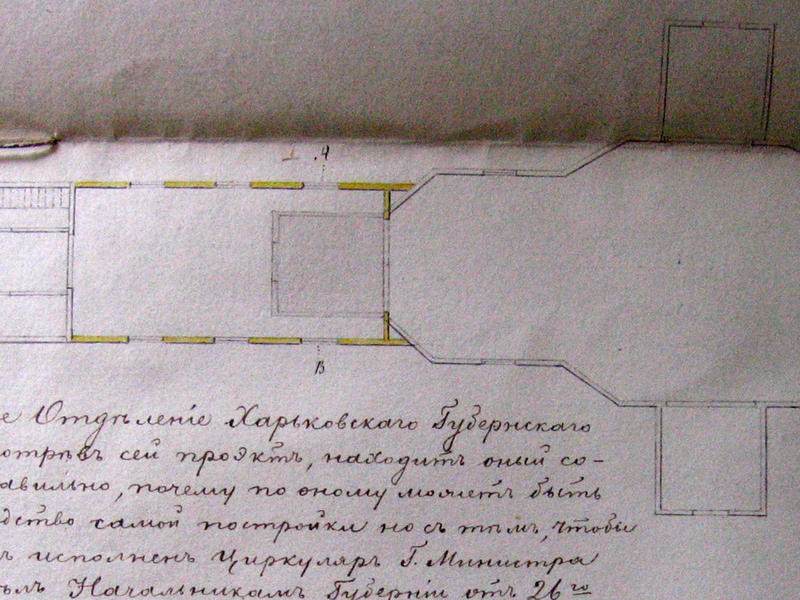 А
В
е Отдѣленіе Харьковскаго Губернскаго
отрѣвъ сей проэктъ, находитъ оный со-
авильно, почему по оному можетъ быть
дство самой постройки но съ тѣмъ, чтобы
ъ исполненъ Циркуляръ Г. Министра
Начальникамъ Губерніи отъ 26го